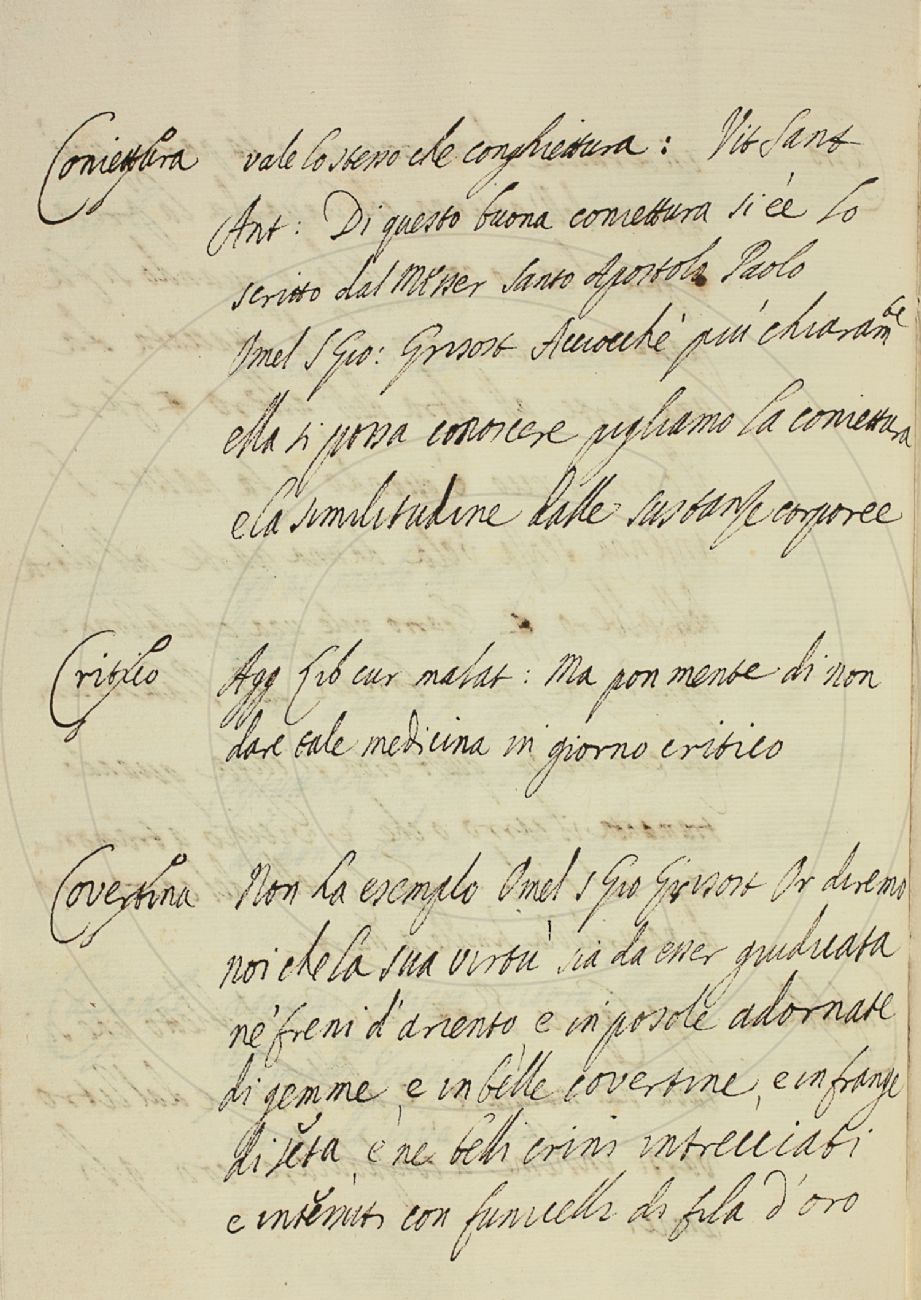 Coniettura vale lo stesso che conghiettura : Vit Sant
Ant : Di questo buona coniettura si è e lo
scritto dal Messer Santo Apostolo Paolo
Omel S Gio : Grisost Acciocchè più chiaram.te
ella si possa conoscere pigliamo la coniettura
e la similitudine dalle sustanze corporee
Critico Agg Lib cur malat : Ma pon mente di non
dare tale medicina in giorno critico
Covertina Non ha esemplo Omel S Gio Grisost Or diremo
noi che la sua virtù sia da esser giudicata
ne' freni d'ariento, e in posole adornate
di gemme, e in belle covertine, e in frange
di seta, e ne belli crini intrecciati
e intorniti con funicelli di fila d'oro